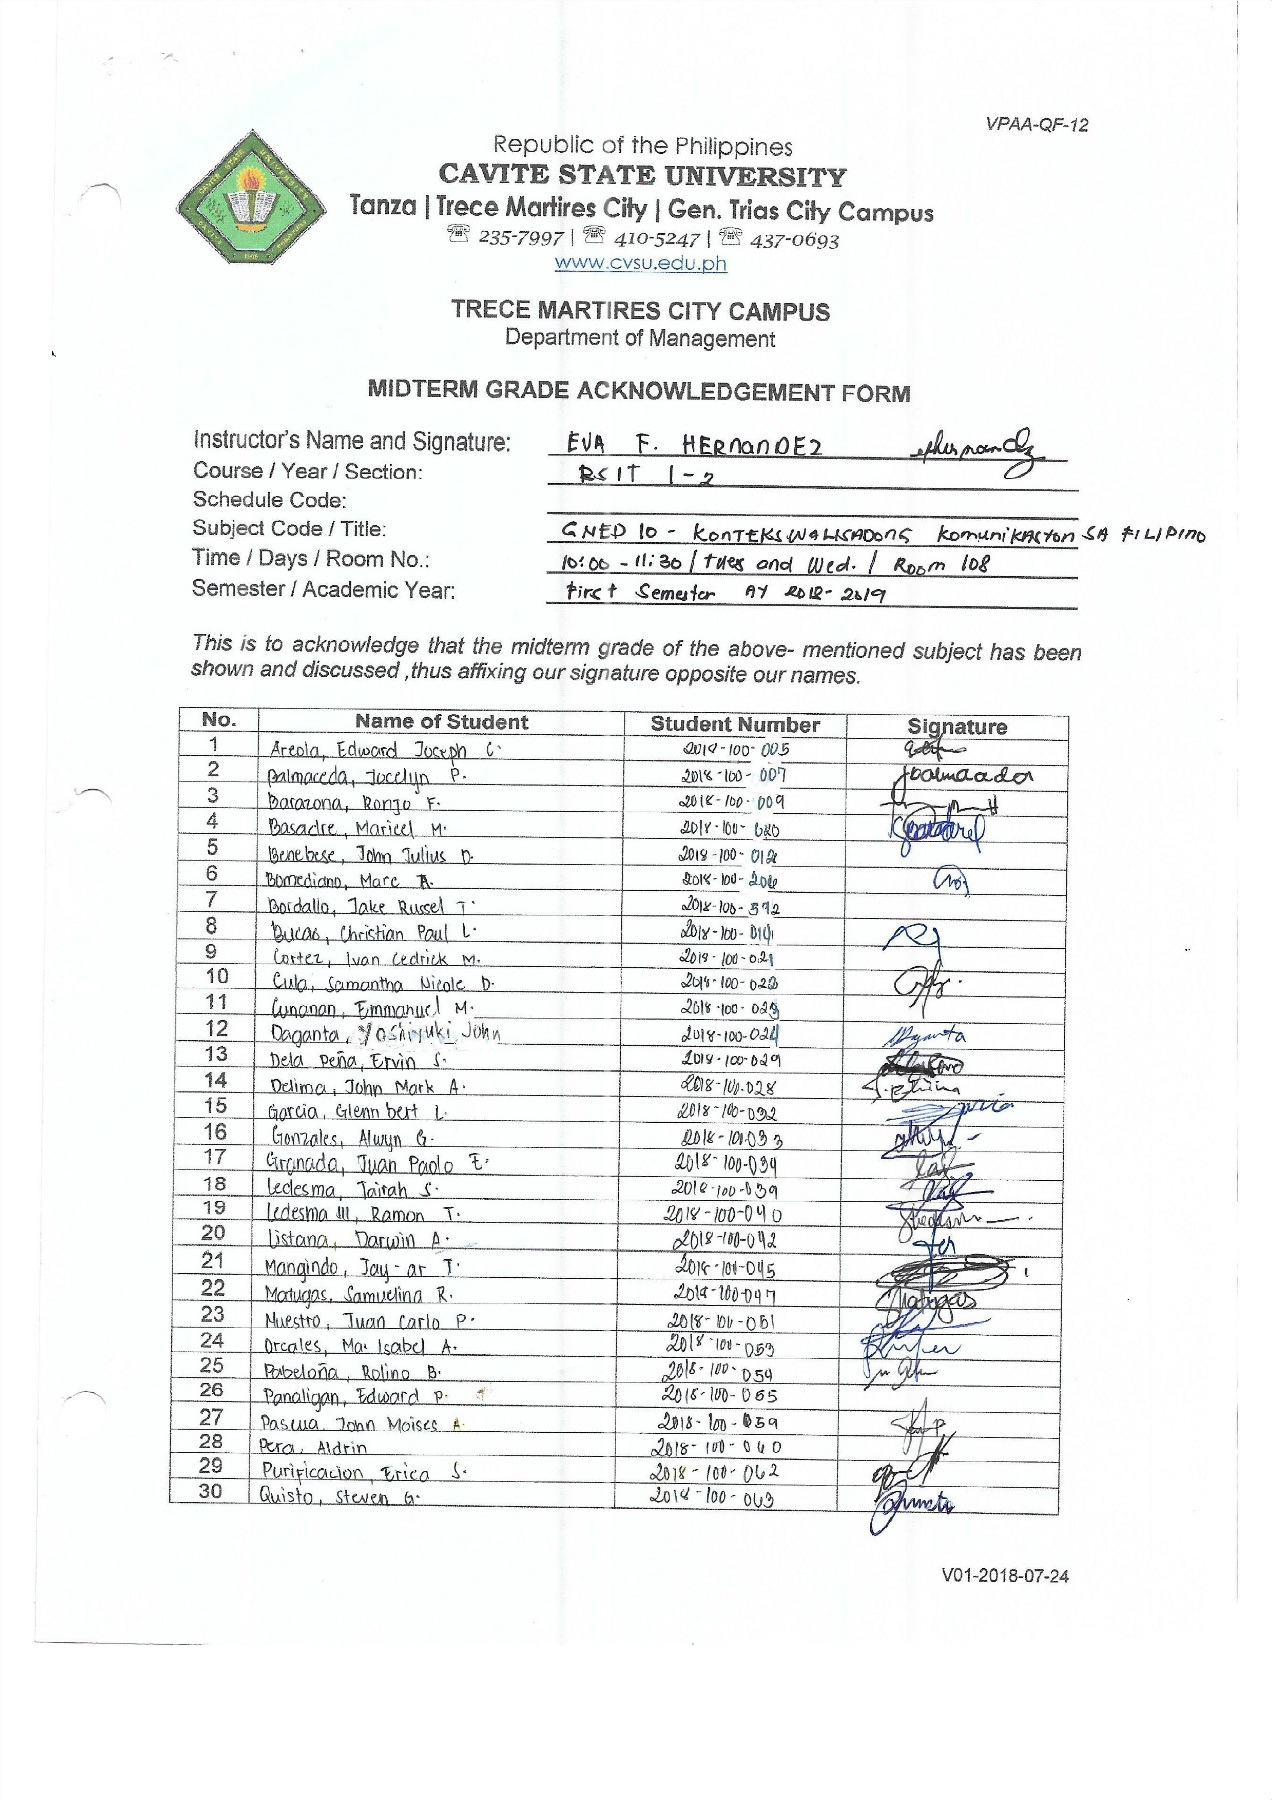 VPAA-QF-12
Republic of the Philippines
CAVITE STATE UNIVERSITY
Tanza | Trece Martires City | Gen. Trias City Campus
☏ 235-7997 | ☏ 410-5247 | ☏ 437-0693
www.cvsu.edu.ph
TRECE MARTIRES CITY CAMPUS
Department of Management
MIDTERM GRADE ACKNOWLEDGEMENT FORM
Instructor's Name and Signature: EVA F. HERNANDEZ
Course / Year / Section: BSIT 1-2
Schedule Code:
Subject Code / Title: GNED 10 - KONTEKSWALISADONG Komunikasyon SA FILIPINO
Time / Days / Room No.: 10:00 - 11:30 / Tues and Wed. / Room 108
Semester / Academic Year: First Semester AY 2018-2019
This is to acknowledge that the midterm grade of the above- mentioned subject has been
shown and discussed ,thus affixing our signature opposite our names.
No. Name of Student Student Number Signature
1 Areola, Edward Joseph C. 2018-100-005
2 Balmaceda, Jocelyn P. 2018-100-007
3 Barazona, Ronjo F. 2018-100-009
4 Basadre, Maricel M. 2018-100-
5 Benebese, John Julius D. 2018-100-012
6 Bomediano, Marc A. 2018-100-206
7 Bordallo, Jake Russel T. 2018-100-
8 Bucas, Christian Paul L. 2018-100-014
9 Cortez, Ivan Cedrick M. 2018-100-021
10 Cula, Samantha Nicole D. 2018-100-022
11 Cunanan, Emmanuel M. 2018-100-023
12 Daganta, Yoshiyuki John 2018-100-024
13 Dela Peña, Ervin S. 2018-100-029
14 Delima, John Mark A. 2018-100-028
15 Garcia, Glenn bert L. 2018-100-032
16 Gonzales, Alwyn G. 2018-100-033
17 Granada, Juan Paolo E. 2018-100-034
18 Ledesma, Tairah S. 2018-100-039
19 Ledesma III, Ramon T. 2018-100-040
20 Listana, Darwin A. 2018-100-042
21 Mangindo, Jay-ar T. 2018-100-045
22 Matugas, Samuelina R. 2018-100-047
23 Nuestro, Juan Carlo P. 2018-100-051
24 Orcales, Ma. Isabel A. 2018-100-053
25 Pabeloña, Rolino B. 2018-100-054
26 Panaligan, Edward P. 2018-100-055
27 Pascua, John Moises A. 2018-100-059
28 Pera, Aldrin 2018-100-060
29 Purificacion, Erica S. 2018-100-062
30 Quisto, Steven G. 2018-100-063
V01-2018-07-24